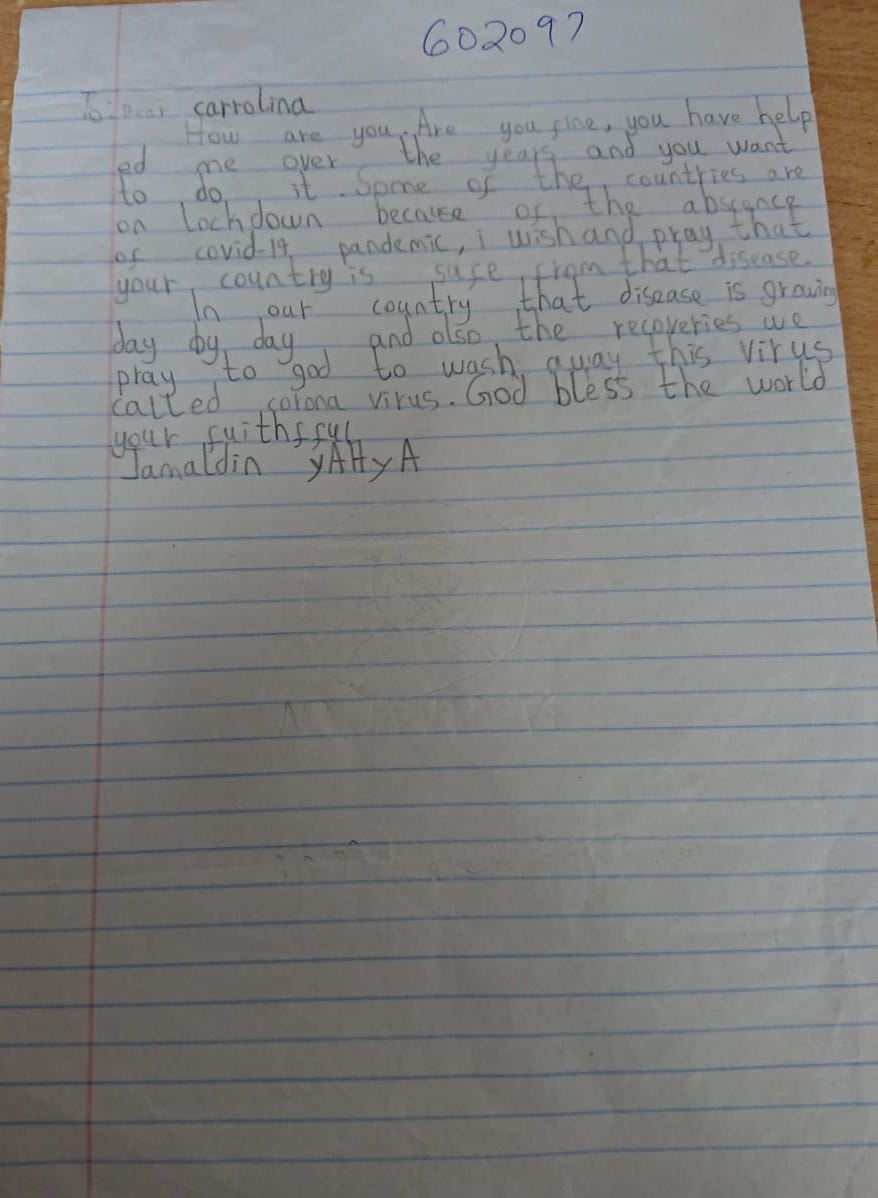 602097
To: Dear carrolina
How are you. Are you fine, you have help
ed me over the years and you want
to do it. Some of the countries are
on lockdown because of the abscence
of covid-19 pandemic, i wish and pray that
your country is safe from that disease.
In our country that disease is growing
day by day and also the recoveries we
pray to god to wash away this virus
called corona virus. God bless the world
your fuithfful
Jamaldin yAHyA